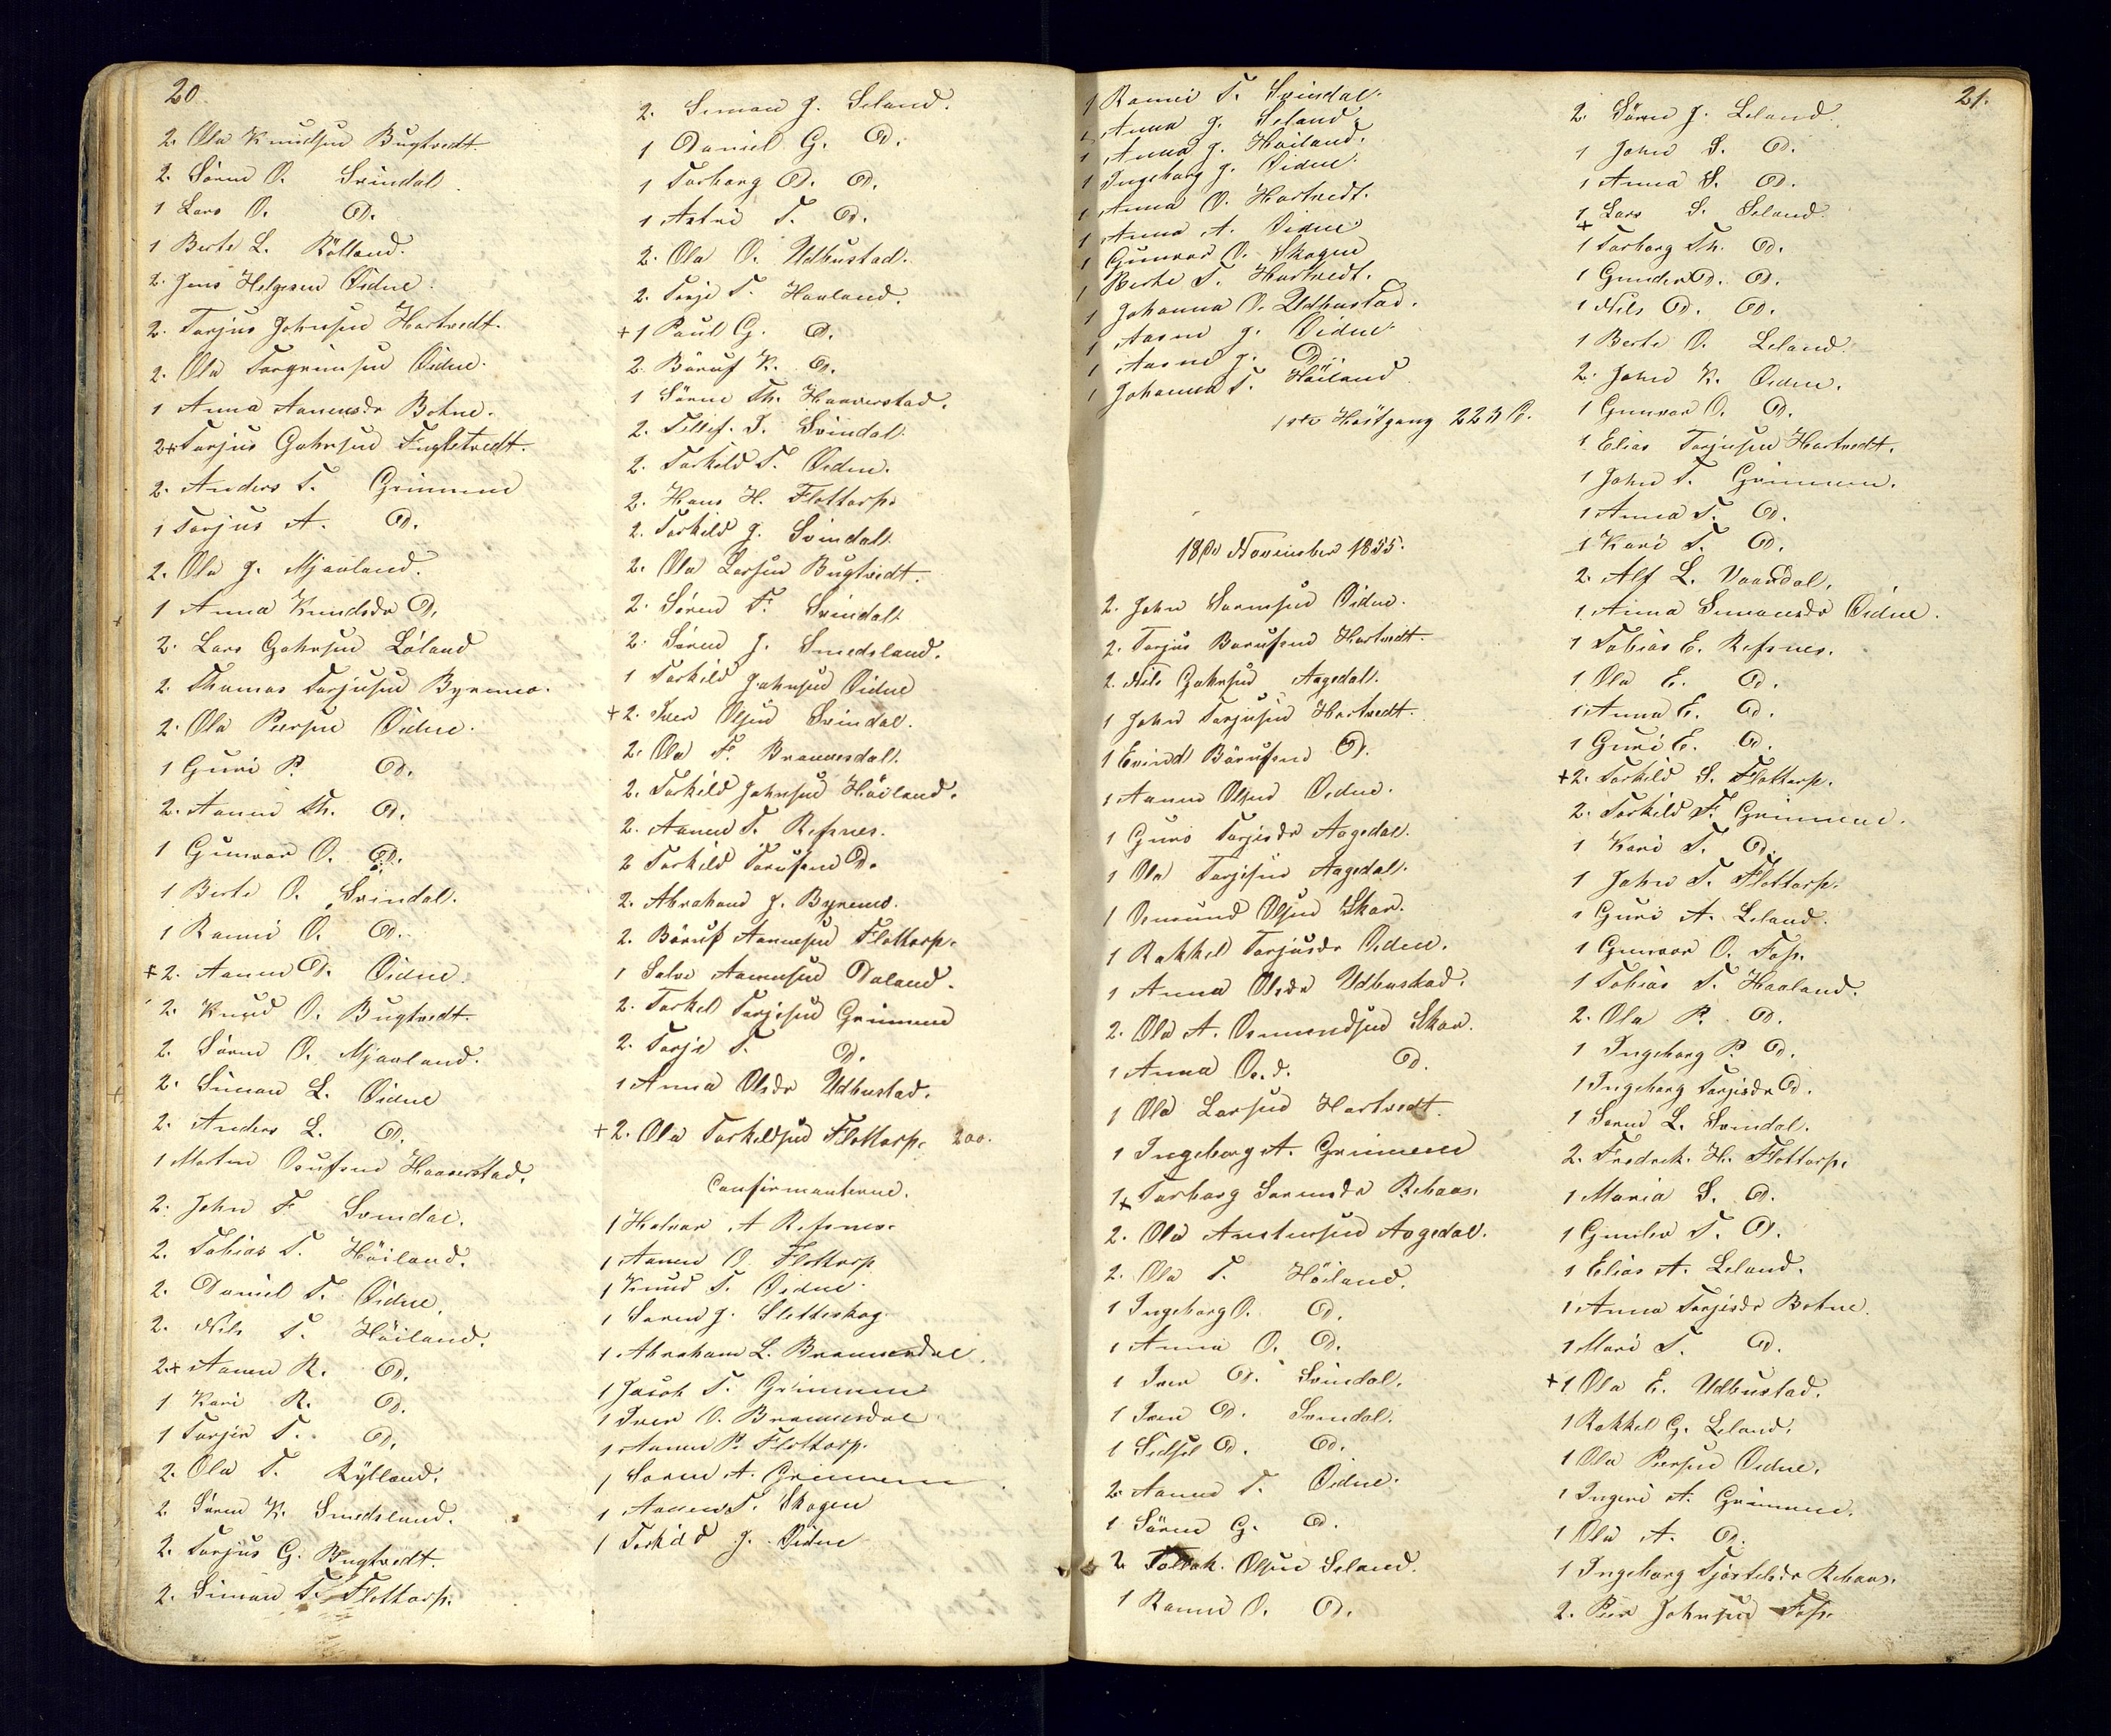 20.
2. Ola Knudsen Bugtvedt.
2. Sören O. Svindal.
1 Lars O. D.
1 Berte L.
2. Jens Helgesen Øidne.
2. Tarjus Johnsen Hartvedt.
2. Ola Torgrimsen Øidne.
1 Anna Aanensdr Botne.
2+ Tarjus Gahrsen Fugletvedt.
2. Anders T. Grimmen
1 Tarjus A. D.
2. Ola J. Mjaaland.
1 Anna Knudsdr D.
2. Lars Gahrsen Løland
2. Thomas Tarjusen Byremo.
2. Ola Peersen Øidne.
1 Guri P. D.
2. Aanen Th. D.
1 Gunvor O. D.
1 Berte O. Svindal.
1 Ranni O. D.
+2. Aanen D. Øidne.
2. Knud O. Bugtvedt.
2. Sören O. Mjaaland.
2. Simon L. Øidne
2. Anders L. D.
1 Morten Haaverstad.
2. John F. Svindal.
2. Tobias T. Höiland.
2. Daniel T. Øidne.
2. Nils T. Höiland.
2.+ Aanen R. D.
1 Kari R. D.
1 Tarjer T. D.
2. Ola T. Rylland.
2. Sören K. Smedsland.
2. Tarjus G. Bugtvedt.
2. Simon T. Flottorp.
2. Simon J. Seland.
1 Daniel G. D.
1 Torborg D. D.
1 Astri T. D.
2. Ola O. Udbustad.
2. Terje T. Haaland.
+1 Paul G. D.
2. Böruf K. D.
1 Sörine Th. Haaverstad.
2. Tellef. I. Svindal.
2. Torkild T. Øidne.
2. Hans H. Flottorp.
2. Torkild J. Svindal.
2. Ola Larsen Bugtvedt.
2. Sören F. Svindal.
2. Sören J. Smedsland.
1 Torkild Johnsen Øidne
+2. Iver Olsen Svindal.
2. Ola F. Brannesdal.
2. Torkild Johnsen Höiland.
2. Aanen T. Refsnes.
2 Torkild D.
2. Abraham J. Byremo.
2. Böruf Aanesen Flottorp.
1 Salve Aanensen Daland.
2. Torkel Tarjesen Grimmen
2. Tarje T. D.
1 Anna Olsdr Udbustad.
+2. Ola Torkeldsen Flottorp. 200.
Confirmanterne.
1 Halvor A Refsnes.
1 Aanen O. Flottorp
1 Knud T. Øidne.
1 Sören J. Sletteskog.
1 Abraham L. Brannesdal.
1 Jacob T. Grimmen
1 Iver O. Brannesdal
1 Aanen P. Flottorp.
1 Sören A. Grimmen
1 Aanen T. Skogen
1 Torkild J. Øidne
21.
1 Ranni T. Svindal.
1 Anna J. Seland.
1 Anna J. Höiland.
1 Ingeborg J. Øidne.
1 Anna O. Hartvedt.
1 Anna A. Øidne
1 Gunvor O. Skogen
1 Berte T. Hartvedt.
1 Johanna O. Udbustad.
1 Aasne J. Øidne.
1 Aasne J. D.
1 Johanna T. Höiland
1ste Höstgang 223 P.
18de November 1855.
2. John Sørensen Øidne.
2. Tarjus Børufsen Hartvedt.
2. Nils Gahrsen Aagedal.
1 John Tarjusen Hartvedt.
1 Erind Börufsen D.
1 Aanen Olsen Øidne.
1 Guro Tarjesdr Aagedal.
1 Ola Tarjesen Aagedal.
1 Osmund Olsen Skar.
1 Rakkel Tarjusdr Øidne.
1 Anna Olsdr Udbustad.
2. Ola A. Osmundsen Skar.
1 Anna O.d. D.
1 Ola Larsen Hartvedt.
1 Ingeborg A. Grimmen
1+ Torborg Sørensdr Rehaas.
2. Ola Anstensen Aagedal.
2. Ola T. Höiland.
1 Ingeborg O. D.
1 Anna O. D.
1 Iver D. Svindal.
1 Iven D. Svindal.
1 Sidsel D. D.
2. Aanen T. Øidne.
1 Sören G. D.
2 Tollak. Olsen Seland.
1 Ranni O. D.
2. Sören J. Leland
1 John S. D.
1 Anna S. D.
1 Lars S. Seland.
+1 Torborg Th. D.
1 Gunder D. D.
1 Nils D. D.
1 Berte O. Leland.
2. John K. Øidne.
1 Gunvor O. D.
1 Elias Tarjusen Hartvedt.
1 John T. Grimmen.
1 Anna T. D.
1 Kari T. D.
2. Alf L. Vaandal.
1 Anna Simonsdr Øidne.
1 Tobias E. Refsnes.
1 Ola E. D.
1 Anna E. D.
1 Guri E. D.
+2. Torkild S. Flottorp.
2. Torkild F. Grimmen.
1 Kari T. D.
1 John T. Flottorp.
1 Guri A. Leland.
1 Gunvor O. Foss.
1 Tobias T. Haaland.
2. Ola P. D.
1 Ingeborg P. D.
1 Ingeborg Tarjesdr D.
1 Sören L. Svindal.
2. Fredrik. H. Flottorp.
1 Maria S. D.
1 Gunder T. D.
1 Elias A. Leland.
1 Anna Tarjesdr Botne.
1 Mari T. D.
+1 Ola E. Udbustad.
1 Rakkel G. Leland.
1 Ola Peersen Øidne.
1 Ingeri A. Grimmen.
1 Ola A. D.
1 Ingeborg Rehaas.
2. Peer Johnsen Foss.